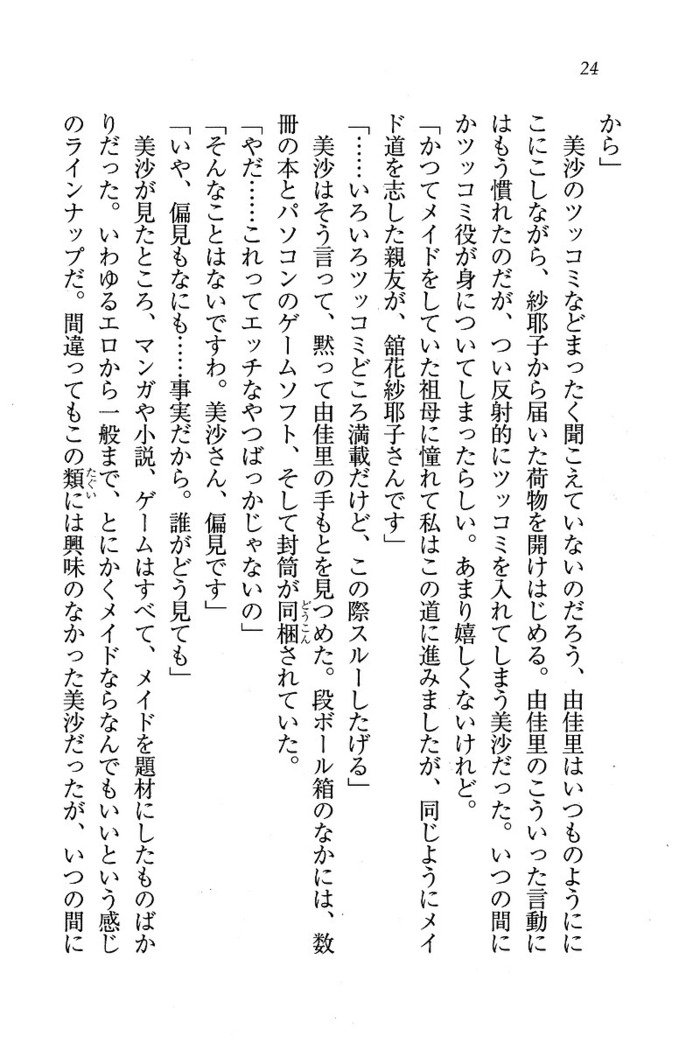 24
から」
　美沙のツッコミなどまったく聞こえていないのだろう、由佳里はいつものようにに
こにこしながら、紗耶子から届いた荷物を開けはじめる。由佳里のこういった言動に
はもう慣れたのだが、つい反射的にツッコミを入れてしまう美沙だった。いつの間に
かツッコミ役が身についてしまったらしい。あまり嬉しくないけれど。
「かつてメイドをしていた祖母に憧れて私はこの道に進みましたが、同じようにメイ
ド道を志した親友が、舘花紗耶子さんです」
「……いろいろツッコミどころ満載だけど、この際スルーしたげる」
　美沙はそう言って、黙って由佳里の手もとを見つめた。段ボール箱のなかには、数
冊の本とパソコンのゲームソフト、そして封筒が同梱どうこんされていた。
「やだ……これってエッチなやつばっかじゃないの」
「そんなことはないですわ。美沙さん、偏見です」
「いや、偏見もなにも……事実だから。誰がどう見ても」
　美沙が見たところ、マンガや小説、ゲームはすべて、メイドを題材にしたものばか
りだった。いわゆるエロから一般まで、とにかくメイドならなんでもいいという感じ
のラインナップだ。間違ってもこの類たぐいには興味のなかった美沙だったが、いつの間に